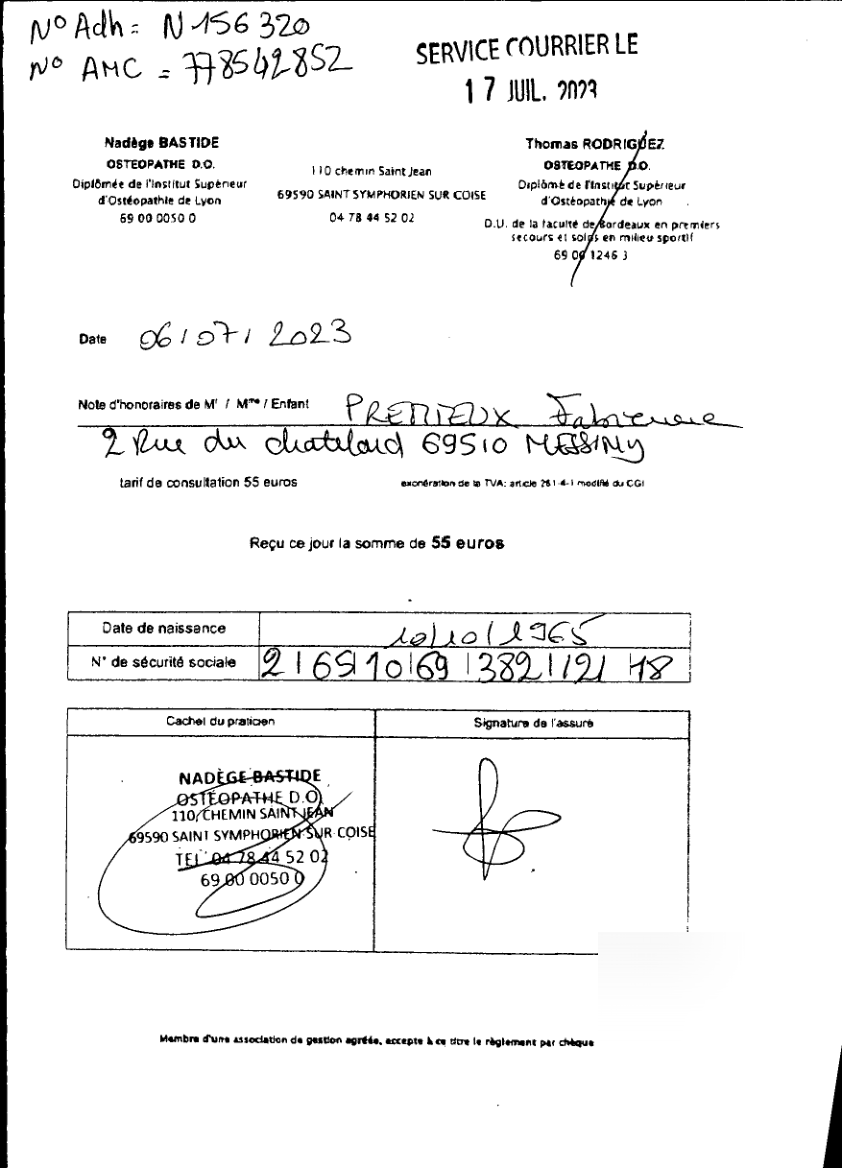 N° Adh = N 156 320
N° AMC = 778542852
SERVICE COURRIER LE
17 JUIL. 2023
Nadège BASTIDE
OSTEOPATHE D.O.
Diplômée de l'Institut Supérieur
d'Ostéopathie de Lyon
69 00 0050 0
110 chemin Saint Jean
69590 SAINT SYMPHORIEN SUR COISE
04 78 44 52 02
Thomas RODRIGUEZ
OSTEOPATHE D.O.
Diplômé de l'Institut Supérieur
d'Ostéopathie de Lyon
D.U. de la faculté de Bordeaux en premiers
secours et soins en milieu sportif
69 00 1246 3
Date 06/07/2023
Note d'honoraires de Mr / Mme / Enfant
2 Rue du chatelard 69510 MESSIMY
tarif de consultation 55 euros
exonération de la TVA: article 261-4-1 modifié du CGI
Reçu ce jour la somme de 55 euros
Date de naissance 10/10/1965
N° de sécurité sociale 2 | 65 | 10 | 69 | 382 | 121 78
Cachet du praticien
Signature de l'assuré
NADÈGE BASTIDE
OSTÉOPATHE D.O
110, CHEMIN SAINT JEAN
69590 SAINT SYMPHORIEN SUR COISE
TEL 04 78 44 52 02
69 00 0050 0
Membre d'une association de gestion agréée, accepte à ce titre le règlement par chèque